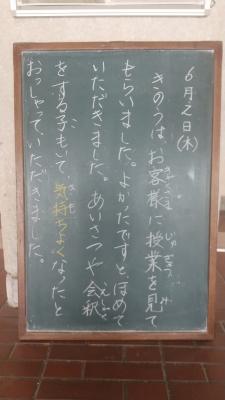 6月2日(木)
きのうは、お客様に授業を見て
もらいました。よかったですと、ほめて
いただきました。あいさつや会釈
をする子もいて、気持ちよくなったと
おっしゃって、いただきました。